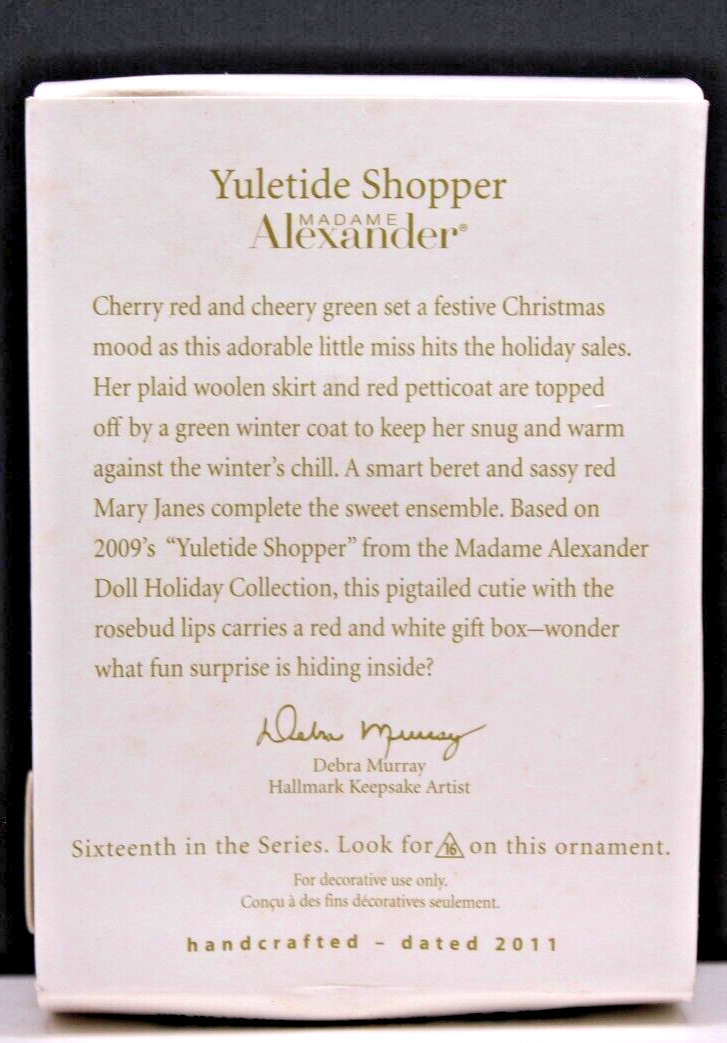 Yuletide Shopper
MADAME
Alexander®
Cherry red and cheery green set a festive Christmas
mood as this adorable little miss hits the holiday sales.
Her plaid woolen skirt and red petticoat are topped
off by a green winter coat to keep her snug and warm
against the winter's chill. A smart beret and sassy red
Mary Janes complete the sweet ensemble. Based on
2009's “Yuletide Shopper” from the Madame Alexander
Doll Holiday Collection, this pigtailed cutie with the
rosebud lips carries a red and white gift box—wonder
what fun surprise is hiding inside?
Debra Murray
Debra Murray
Hallmark Keepsake Artist
Sixteenth in the Series. Look for 16 on this ornament.
For decorative use only.
Conçu à des fins décoratives seulement.
handcrafted – dated 2011